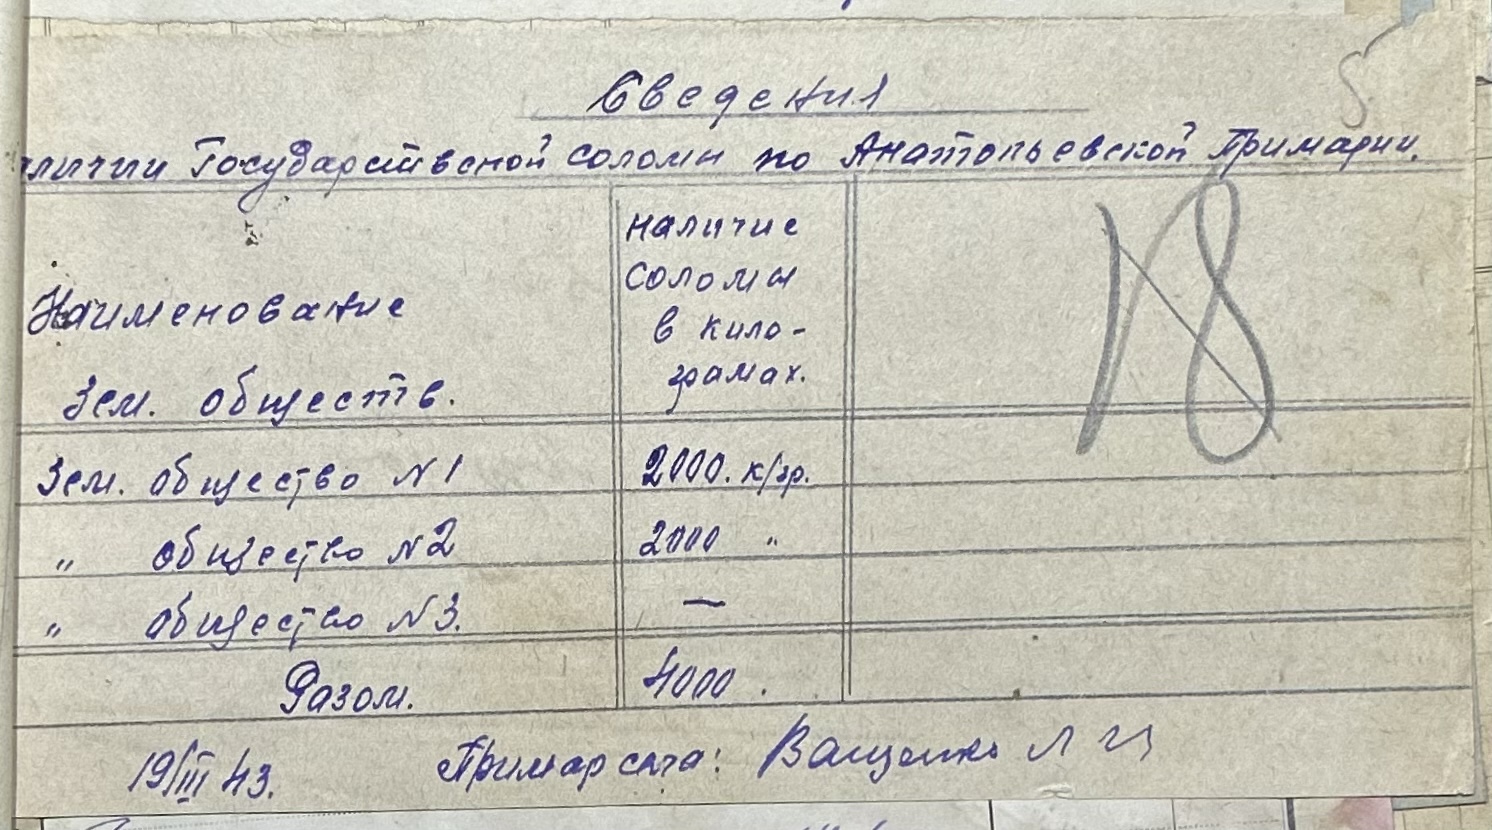 Сведения
личии Государственой соломы по Анатольевской Примарии.
Наименование
Зем. обществ.
наличие
соломы
в кило-
грамах.
18
5
Зем. общество N1 2000. к/гр.
" общество N2 2000 "
" общество N3. —
Разом. 4000.
19/III 43. Примар села: Ващенко